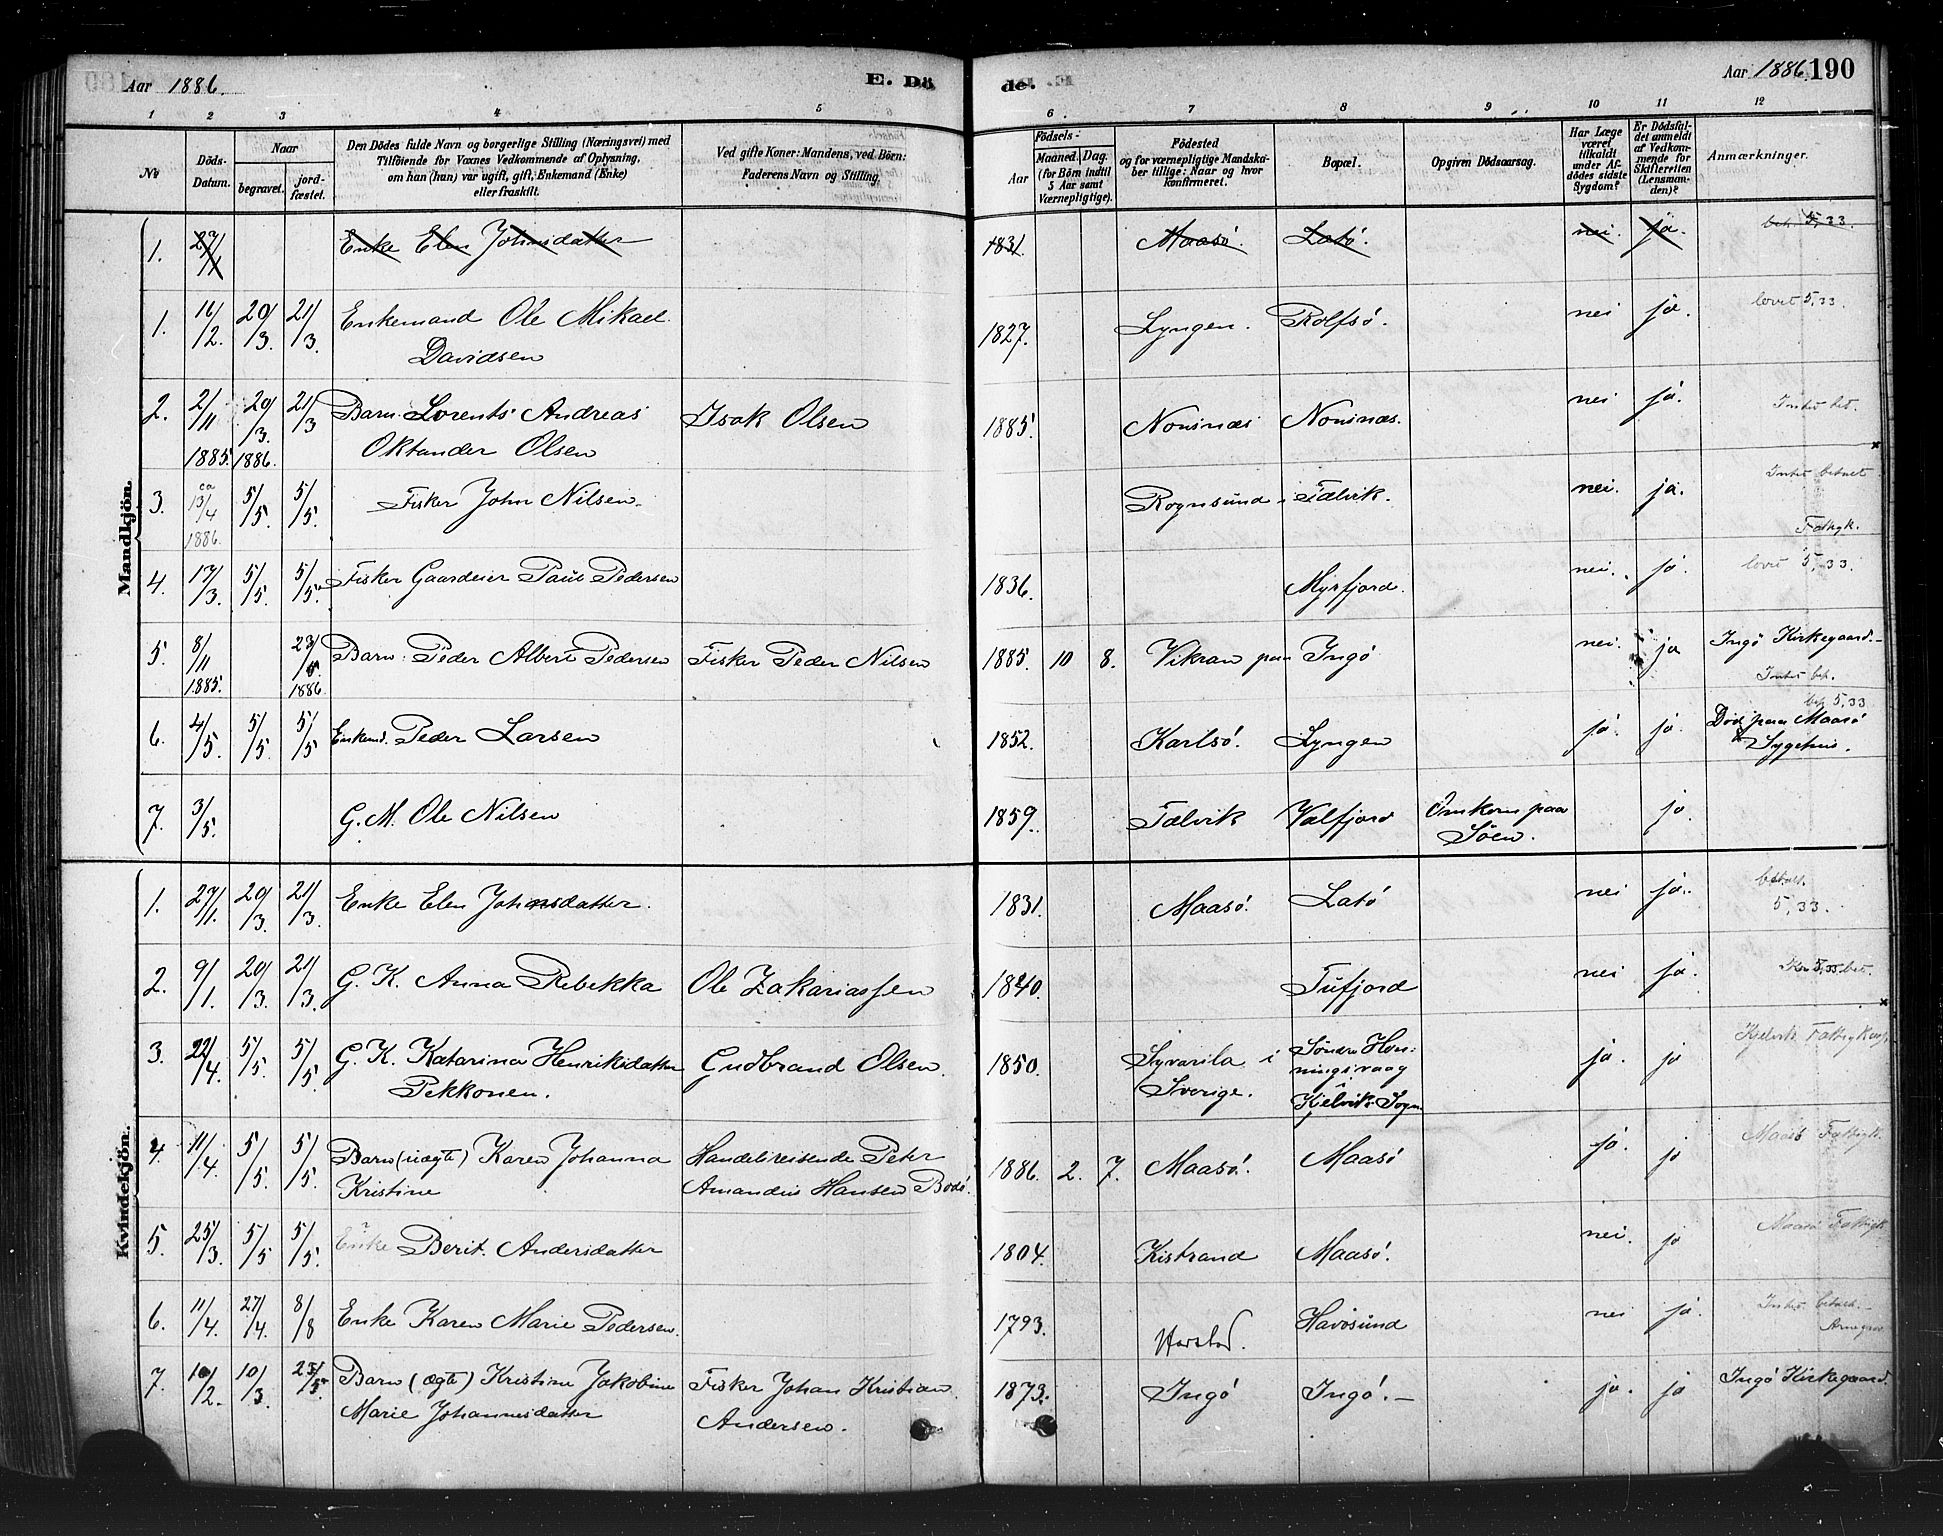 Aar 1886. E. Dö
de. Aar 1886. 190
1 2 3 4 5 6 7 8 9 10 11 12
No
Döds-
Datum.
Naar
begravet.
jord-
fæstet.
Den Dödes fulde Navn og borgerlige Stilling (Næringsvei) med
Tilföiende for Voxnes Vedkommende af Oplysning,
om han (hun) var ugift, gift, Enkemand (Enke)
eller fraskilt.
Ved gifte Koner: Mandens, ved Börn:
Faderens Navn og Stilling.
Födsels-
Aar
Maaned. Dag.
(for Börn indtil
5 Aar samt
Værnepligtige).
Födested
og for værnepligtige Mandska-
ber tillige: Naar og hvor
konfirmeret.
Bopæl.
Opgiven Dödsaarsag.
Har Læge
været
tilkaldt
under Af-
dödes sidste
Sygdom?
Er Dödsfal-
det anmeldt
af Vedkom-
mende for
Skifteretten
(Lensman-
den)?
Anmærkninger.
Mandkjön.
1. 27/1 Enke Elen Johnsdatter 1831. Maasö. Latö. nei. ja. bet. 5,33
1. 16/2. 20/3. 21/3. Enkemand Ole Mikael 1827. Lyngen. Rolfsö. nei ja. lovet 5,33
Davidsen
2. 2/11 20/3. 21/3 Barn Lorents Andreas Isak Olsen 1885. Nonsnæs Nonsnæs. nei ja. Intet bet.
1885. 1886. Oktander Olsen
3. ca 13/4 5/5. 5/5. Fisker John Nilsen. Rognsund i Talvik. nei. ja. Intet betalt
1886. Fattigk.
4. 17/3. 5/5. 5/5. Fisker Gaardeier Paul Pedersen 1836. Myrfjord. nei. ja. lovet 5,33.
5. 8/11 23/5. Barn Peder Albert Pedersen Fisker Peder Nilsen 1885. 10 8. Vikran paa Ingö nei. ja Ingö Kirkegaard.
1885. 1886. Intet bet.
bet 5,33
6. 4/5. 5/5. 5/5 Enkemd. Peder Larsen 1852. Karlsö. Lyngen ja. ja. Död paa Maasö
Sygehus.
7. 3/5. G. M. Ole Nilsen 1859. Talvik Valfjord Omkom paa ja.
Söen.
Kvindekjön.
1. 27/1. 20/3 21/3. Enke Elen Johnsdatter. 1831. Maasö. Latö nei ja. betalt.
5,33.
2. 9/1. 20/3. 21/3. G. K. Anna Rebekka Ole Zakariassen 1840. Tufjord nei ja. 5,33 bet.
3. 22/4. 5/5. 5/5. G. K. Katarina Henriksdatter Gudbrand Olsen. 1850. i Söndre Hon- ja. ja Kjelvik
Pekkonen. Sverige. ningsvaag
i
Kjelvik Sogn
4. 11/4. 5/5. 5/5. Barn (uægte) Karen Johanna Handelsreisende Peter 1886. 2. 7. Maasö. Maasö ja. ja Maasö Fattigk.
Kristine Amandus Hansen Bodö.
5. 25/3. 5/5 5/5. Enke Berit Andersdatter 1804. Kistrand Maasö. nei. ja Maasö Fattigk
6. 11/4. 27/4. 8/8 Enke Karen Marie Pedersen. 1793. Harstad. Havösund nei ja. Intet betalt.
7. 10/2. 10/3. 23/5 Barn (ægte) Kristine Jakobine Fisker Johan Kristian 1873. Ingö Ingö. ja. ja Ingö Kirkegaard.
Marie Johannesdatter Andersen.